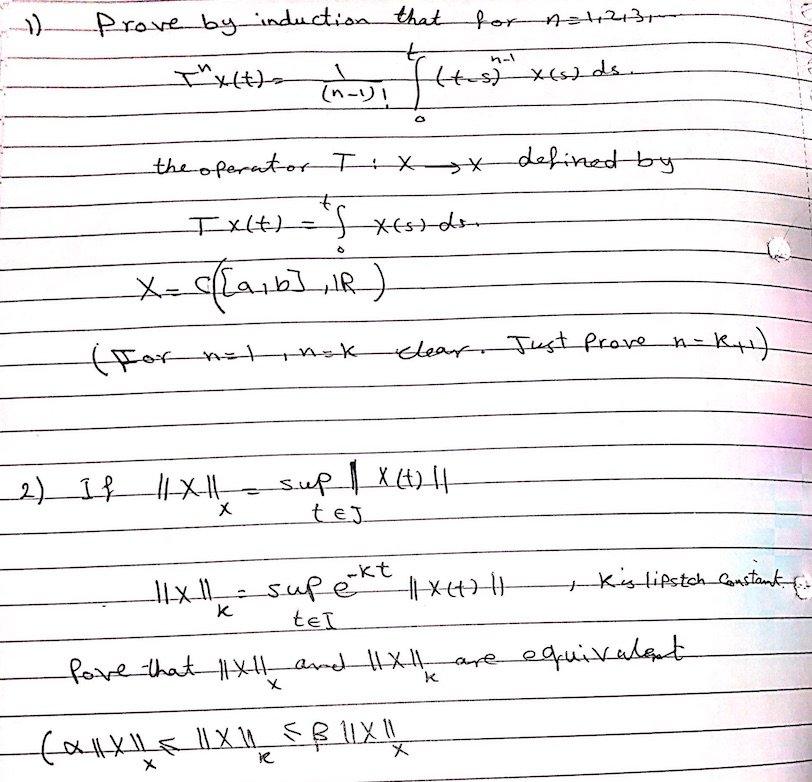 1) Prove by induction that for n=1,2,3,...
Tⁿx(t) = 1/(n-1)! ∫₀ᵗ (t-s)ⁿ⁻¹ x(s) ds.
the operator T : X → X defined by
Tx(t) = ∫₀ᵗ x(s) ds.
X = C([a,b], IR)
(For n=1, n=k clear. Just Prove n=k+1)
2) If ||x||_X = sup || x(t) ||
t∈J
||x||_k = sup e^{-kt} || x(t) || , K is lipstch Constant.
t∈I
Pove that ||x||_X and ||x||_k are equivalent
(α||x||_X ≤ ||x||_k ≤ β ||x||_X